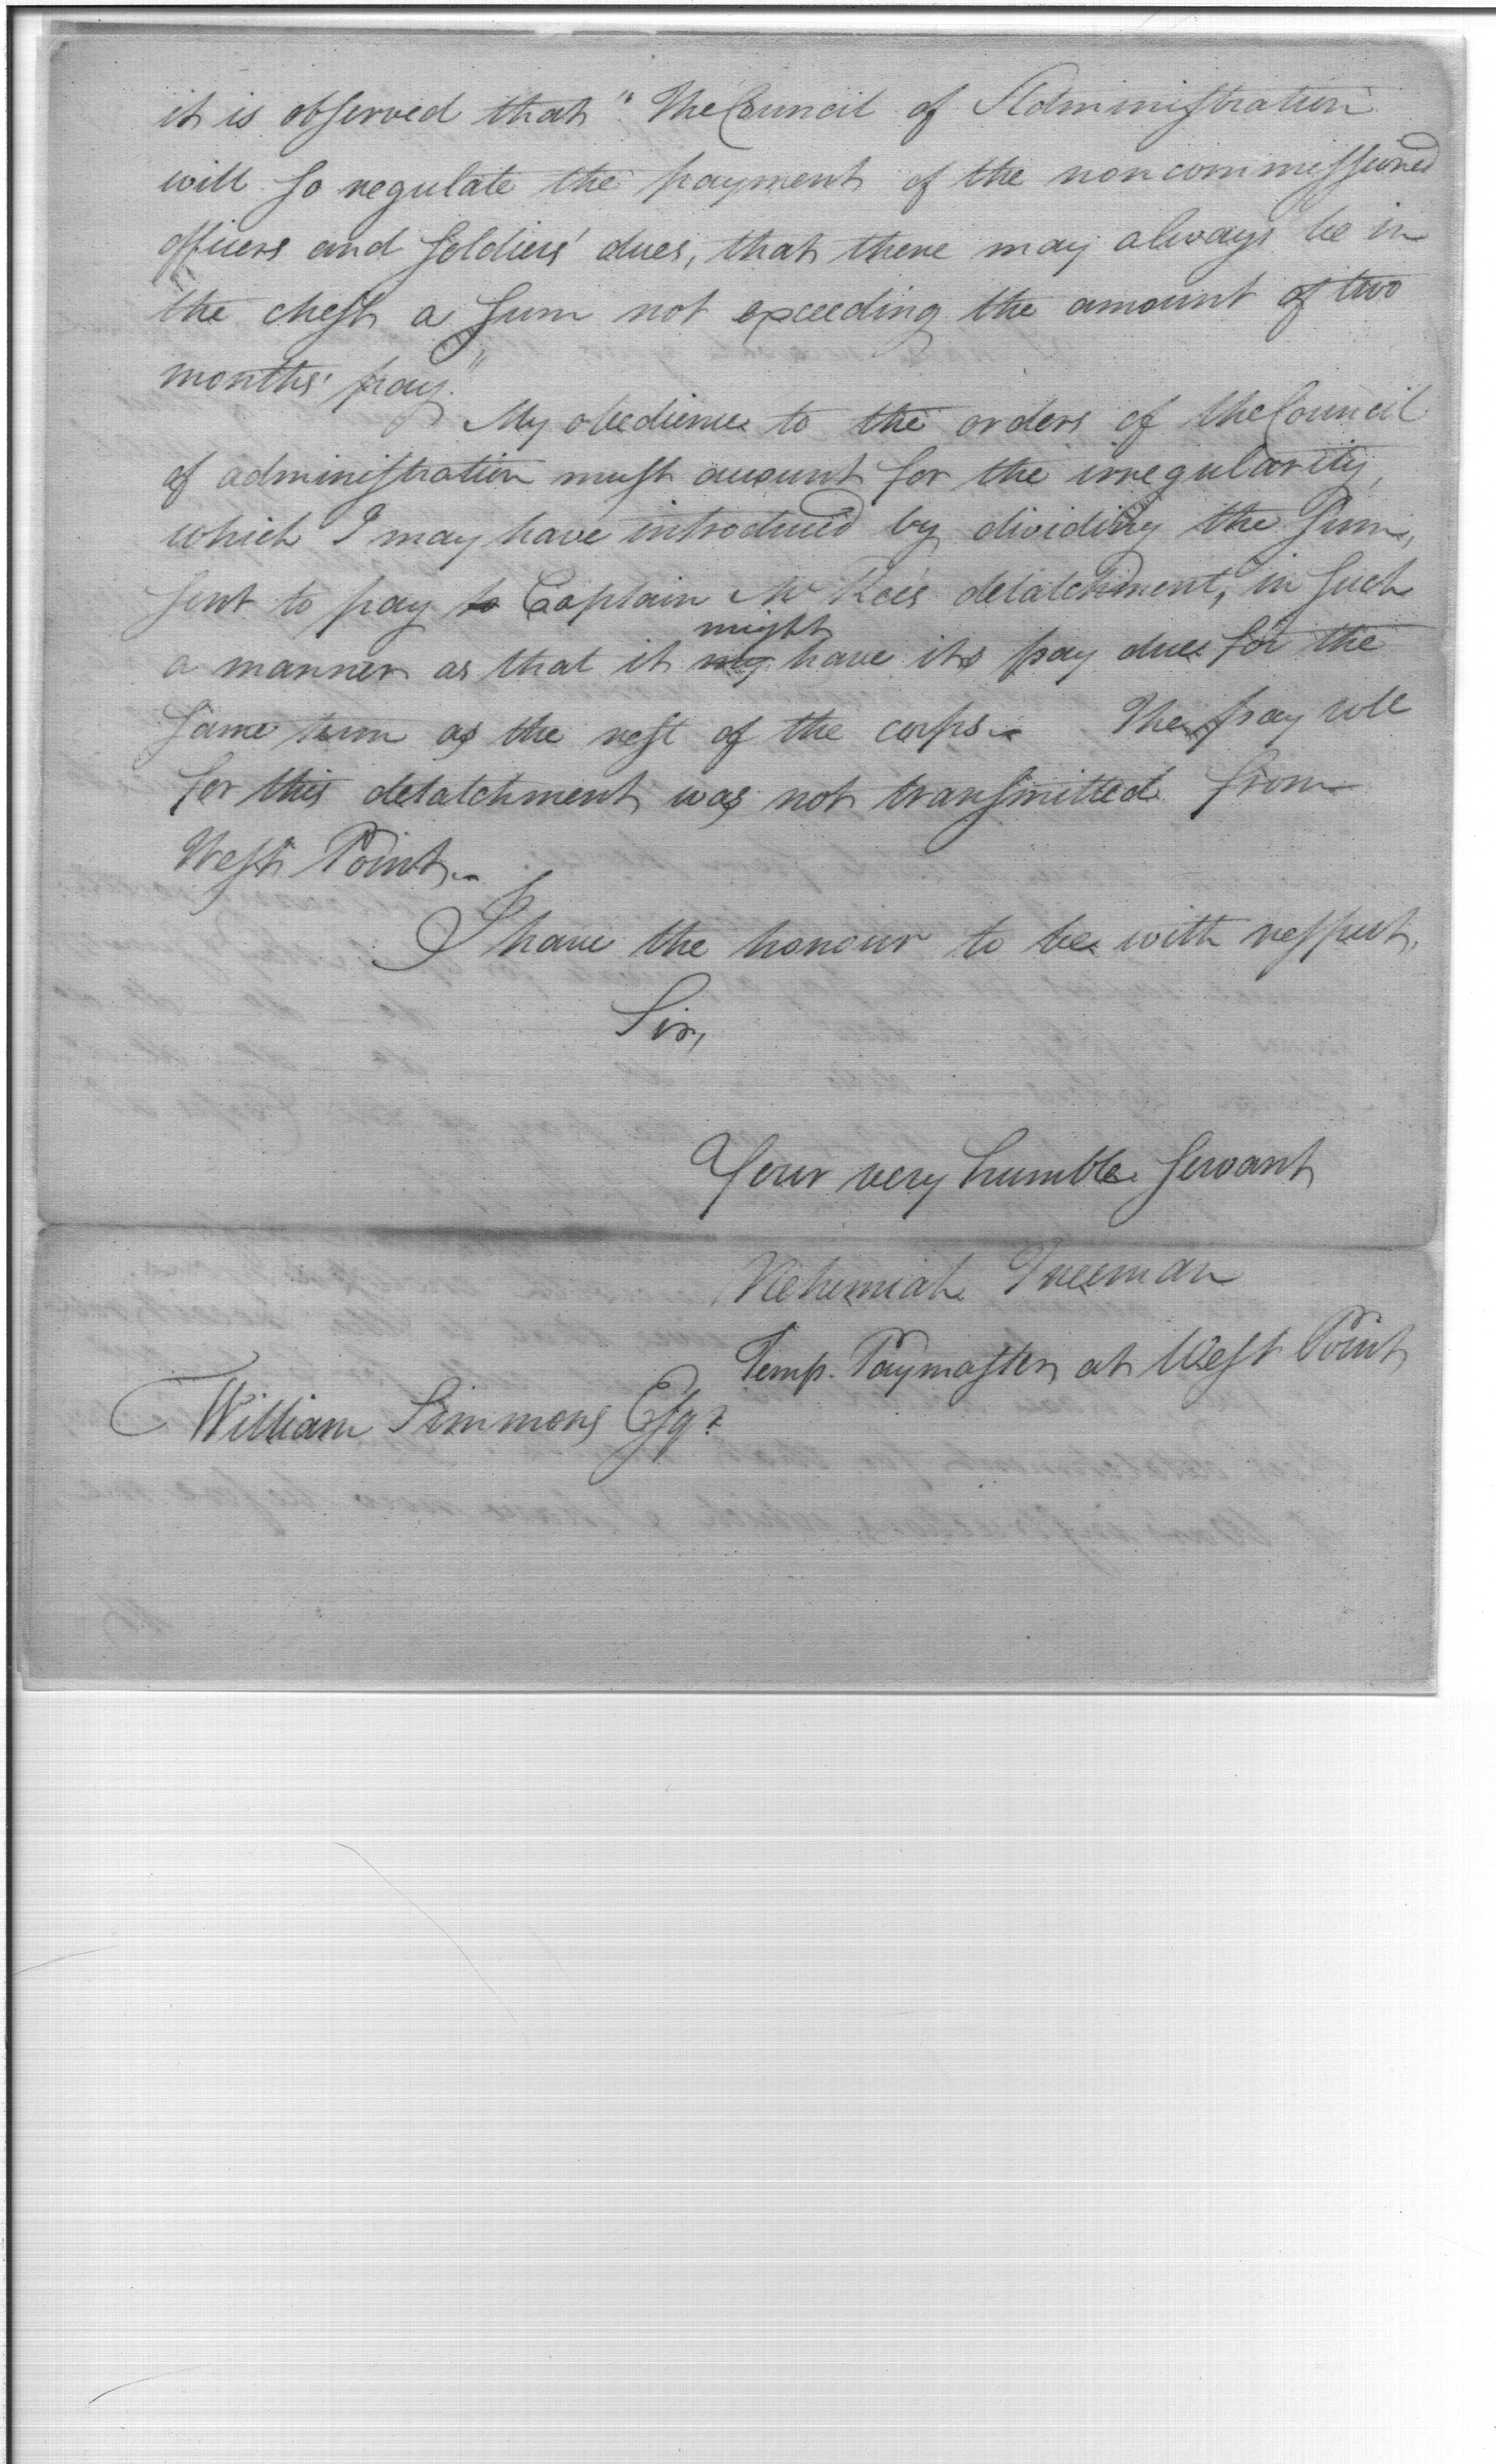 it is observed that "The Council of Administration
will so regulate the payment of the noncommissioned
officers and soldiers' dues, that there may always be in
the chest a sum not exceeding the amount of two
months' pay."
My obedience to the orders of the Council
of administration must account for the irregularity,
which I may have introduced by dividing the sum,
sent to pay to Captain McRee's detatchment, in such
might
a manner as that it may have its pay due for the
same term as the rest of the corps. The pay roll
for this detatchment was not transmitted from
West Point.
I have the honour to be with respect,
Sir,
Your very humble servant
Nehemiah Freeman
Temp. Paymaster at West Point
William Simmons Esqr